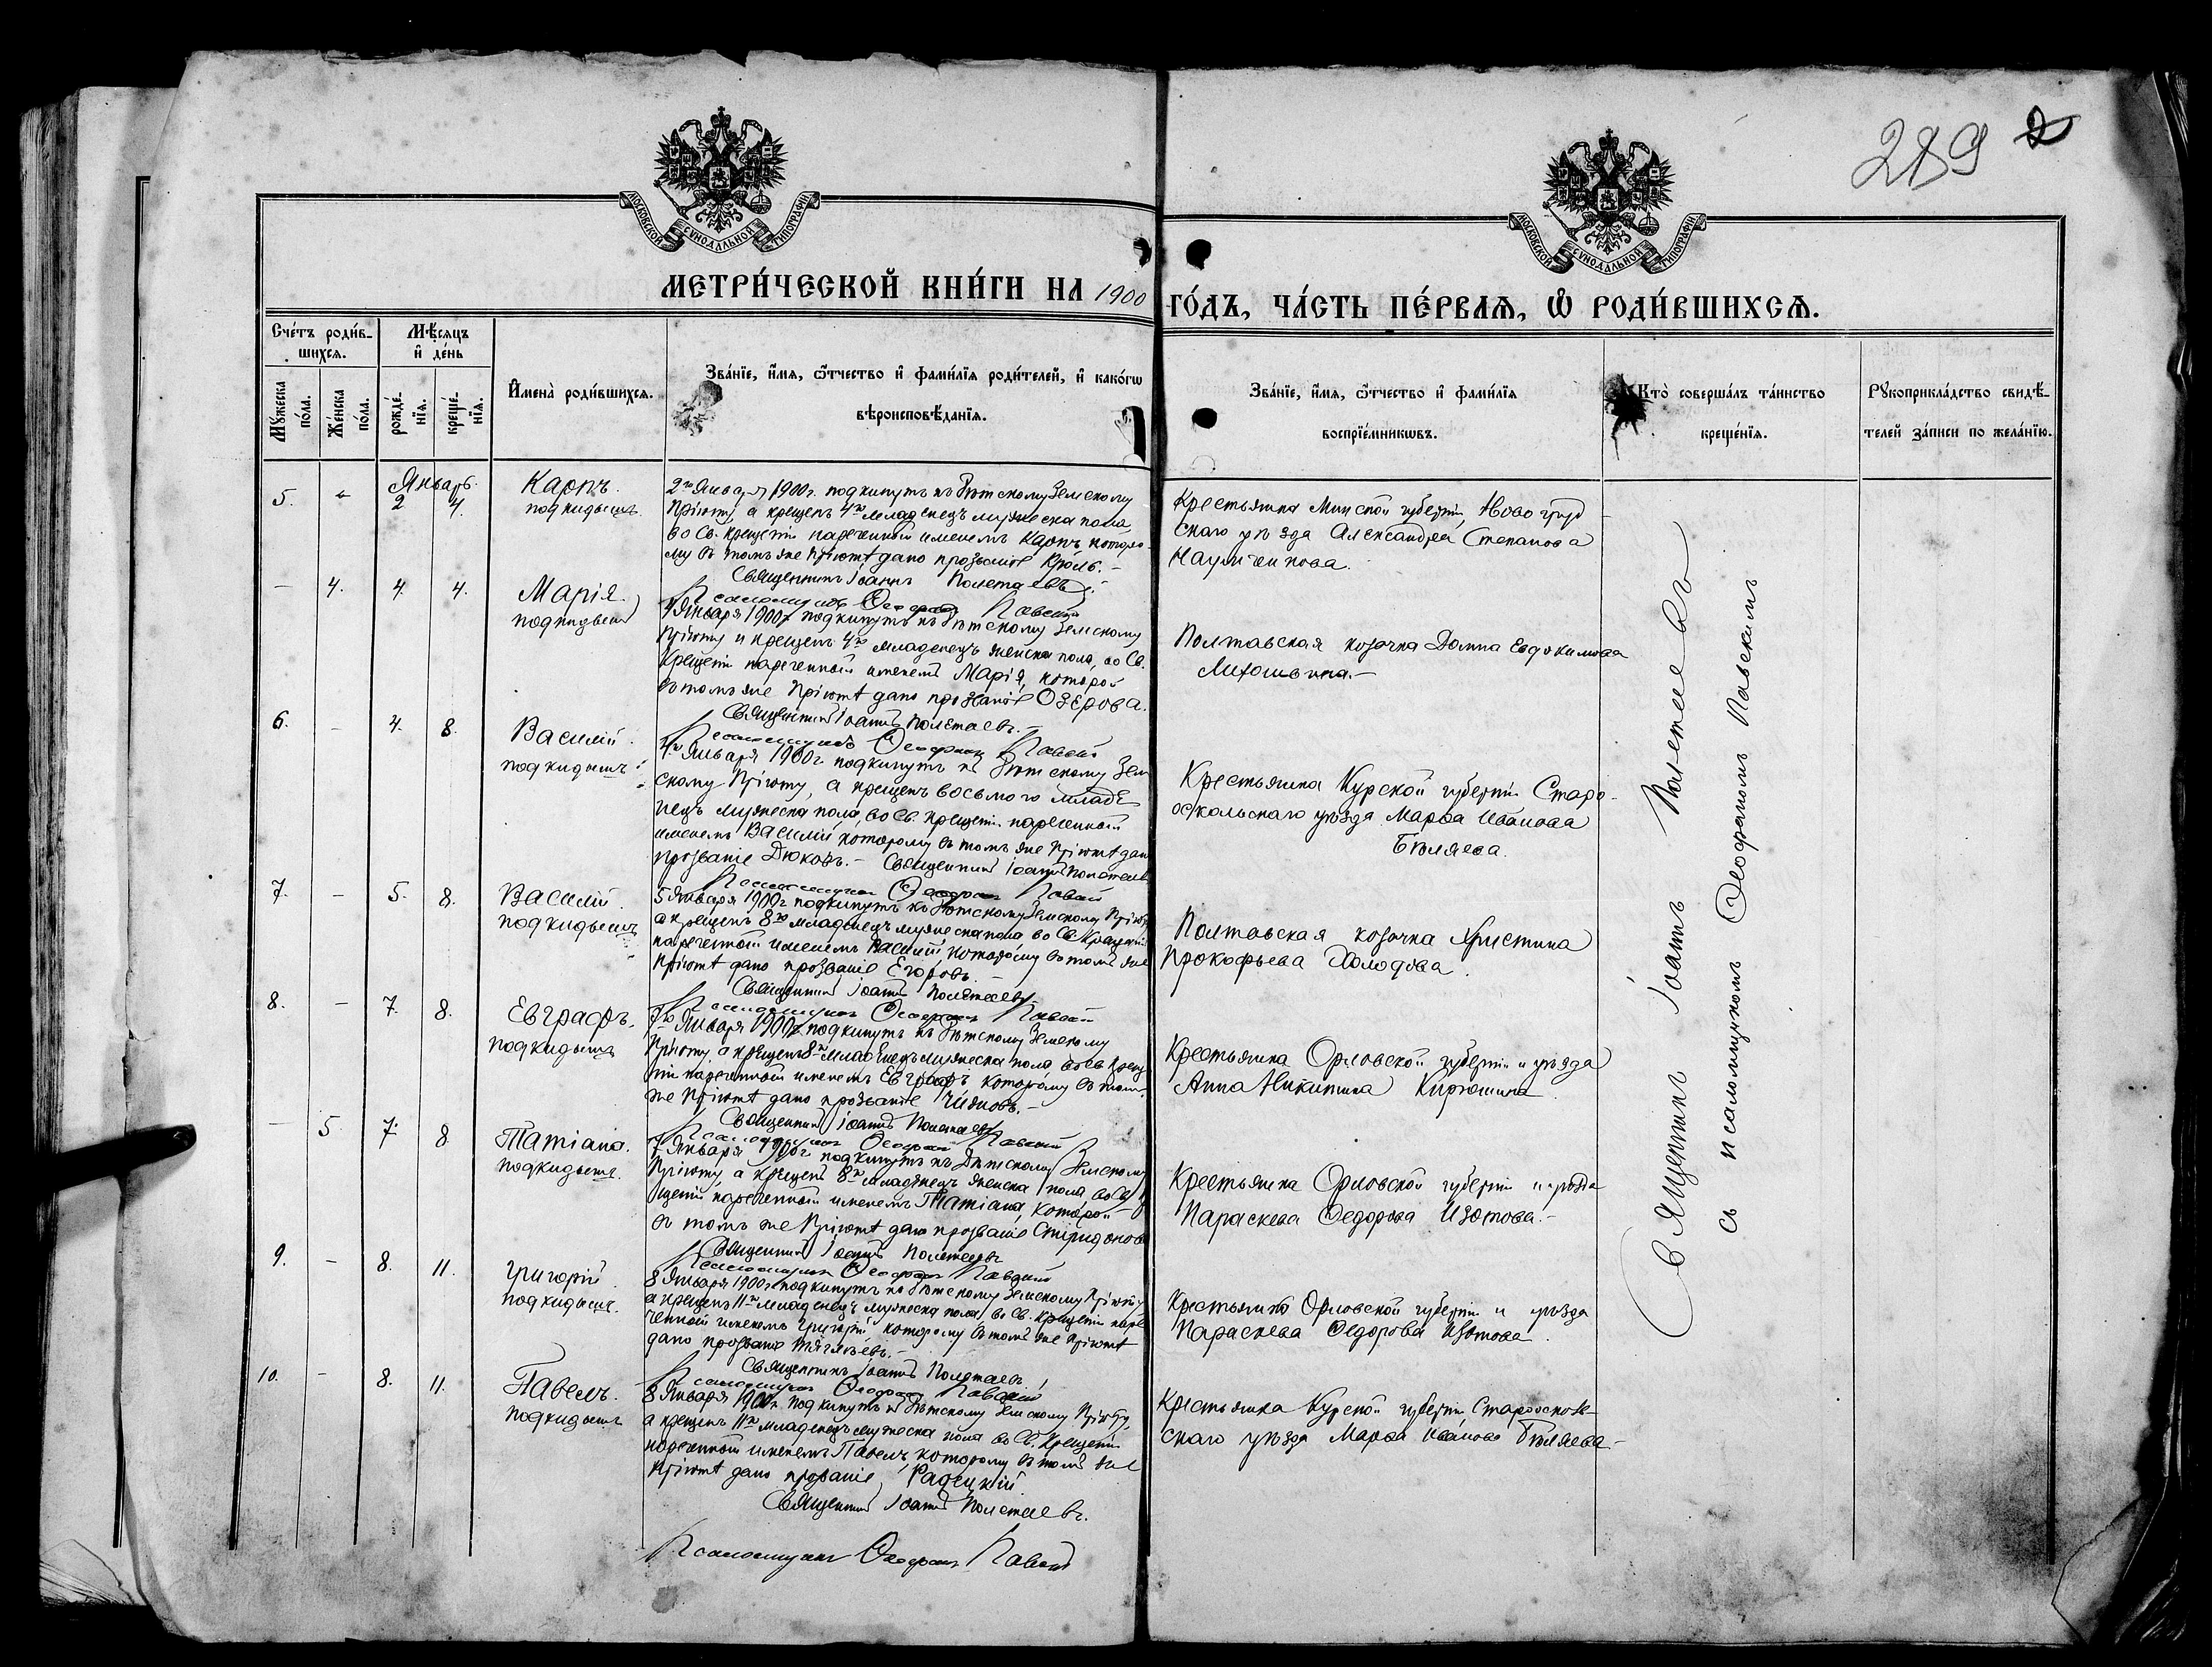 289 2
МОСКОВСКОЙ СУНОДАЛЬНОЙ ТИПОГРАФІИ
МОСКОВСКОЙ СУНОДАЛЬНОЙ ТИПОГРАФІИ
МЕТРИ́ЧЕСКОЙ КНИ́ГИ НА 1900 ГО́ДЪ, ЧА́СТЬ ПЕ́РВАѦ, Ѡ РОДИ́ВШИХСѦ.
Сче́тъ роди́в-
шихсѧ.
Мѣ́сѧцъ
и҆ де́нь
Мꙋжеска по́ла.
Же́нска по́ла.
рожде́нїѧ.
креще́нїѧ.
И҆мена̀ роди́вшихсѧ.
Зва́нїе, и҆́мѧ, ѻ҆́тчество и҆ фами́лїѧ роди́телей, и҆ како́гѡ
вѣроисповѣ́данїѧ.
Зва́нїе, и҆́мѧ, ѻ҆́тчество и҆ фами́лїѧ
воспрїе́мникѡвъ.
Кто̀ соверша́лъ та́инство
креще́нїѧ.
Рꙋкоприкла́дство свидѣ́-
телей за́писи по жела́нїю.
Январь.
5. 2 4. Карпъ.
подкидышъ
2го Января 1900 г. подкинутъ къ Дѣтскому Земскому
Пріюту, а крещенъ 4го младенецъ мужеска пола,
во Св. Крещеніи нареченный именемъ Карпъ, которо-
му въ томъ же Пріютѣ дано прозваніе Кроль. –
Священникъ Іоаннъ Полетаевъ.
Псаломщикъ Ѳеофанъ Павскій
Крестьянка Минской губерніи, Новогруд
скаго уѣзда Александра Степанова
– 4. 4. 4. Марія.
подкидышъ
Января 1900 г. подкинутъ къ Дѣтскому Земскому
Пріюту и крещенъ 4го младенецъ женска пола, во Св.
Крещеніи нареченный именемъ Марія, которой
въ томъ же Пріютѣ дано прозваніе Озерова.
Священникъ Іоаннъ Полетаевъ. –
Псаломщикъ Ѳеофанъ Павскій
Полтавская козачка Домна Евдокимова
6. – 4. 8. Василій.
подкидышъ
4го Января 1900 г. подкинутъ къ Дѣтскому Зем
скому Пріюту, а крещенъ восьмого младе
нецъ мужеска пола, во Св. Крещеніи нареченный
именемъ Василій которому въ томъ же Пріютѣ дан
прозваніе Дюковъ. – Священникъ Іоаннъ Полетаевъ
Псаломщикъ Ѳеофанъ Павскій
Крестьянка Курской губерніи Старо-
оскольскаго уѣзда Марѳа Иванова
Бѣляева.
7. – 5. 8. Василій.
подкидышъ
5 Января 1900 г подкинутъ къ Дѣтскому Земскому Пріюту
а крещенъ 8го младенецъ мужеска пола во Св. Крещеніи
нареченный именемъ Василій, которому въ томъ же
Пріютѣ дано прозваніе Егоровъ. –
Священникъ Іоаннъ Полетаевъ
Псаломщикъ Ѳеофанъ Павскій
Полтавская козачка Христина
Прокофьева Холодова.
8. – 7. 8. Евграфъ.
подкидышъ
7го Января 1900 г подкинутъ къ Дѣтскому Земскому
Пріюту, а крещенъ 8го младенецъ мужеска пола во Св Креще
ніи нареченный именемъ Евграфъ которому въ томъ
же Пріютѣ дано прозваніе Чижовъ. –
Священникъ Іоаннъ Полетаевъ
Псаломщикъ Ѳеофанъ Павскій
Крестьянка Орловской губерніи и уѣзда
Анна Никитина Кирюшина
– 5 7. 8 Татіана.
подкидышъ.
7 Января 1900 г подкинутъ къ Дѣтскому Земскому
Пріюту, а крещенъ 8го младенецъ женска пола во Св Кре
щеніи нареченный именемъ Татіана, которой
въ томъ же Пріютѣ дано прозваніе Спиридонова
Священникъ Іоаннъ Полетаевъ
Псаломщикъ Ѳеофанъ Павскій
Крестьянка Орловской губерніи и уѣзда
Параскева Ѳедорова Изотова. –
9. – 8. 11. Григорій.
подкидышъ.
8 Января 1900 г. подкинутъ къ Дѣтскому Земскому Пріюту
а крещенъ 11го младенецъ мужеска пола, во Св. Крещеніи наре
ченный именемъ Григорій, которому въ томъ же Пріютѣ
дано прозваніе
Священникъ Іоаннъ Полетаевъ
Псаломщикъ Ѳеофанъ Павскій
Крестьянка Орловской губерніи и уѣзда
Параскева Ѳедорова Изотова.
10. – 8. 11. Павелъ.
подкидышъ
8 Января 1900 г. подкинутъ къ Дѣтскому Земскому Пріюту,
а крещенъ 11го младенецъ мужеска пола во Св. Крещеніи
нареченный именемъ Павелъ, которому въ томъ же
Пріютѣ дано прозваніе Радецкій.
Священникъ Іоаннъ Полетаевъ.
Псаломщикъ Ѳеофанъ Павскій
Крестьянка Курской губерніи Староосколь-
скаго уѣзда Марѳа Иванова Бѣляева –
Священникъ Іоаннъ Полетаевъ
съ псаломщикомъ Ѳеофаномъ Павскимъ